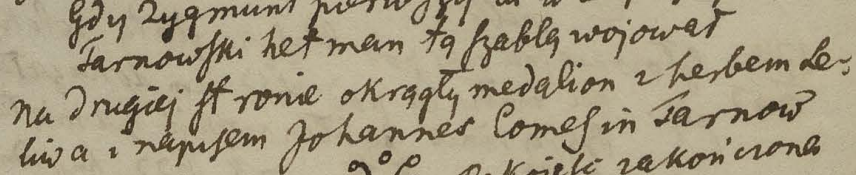 Gdy Zygmunt pierwszy
Tarnowski hetman tą szablą wojował
na drugiej stronie okrągły medalion z herbem Le-
liwa i napisem Johannes Comes in Tarnow
zakończona